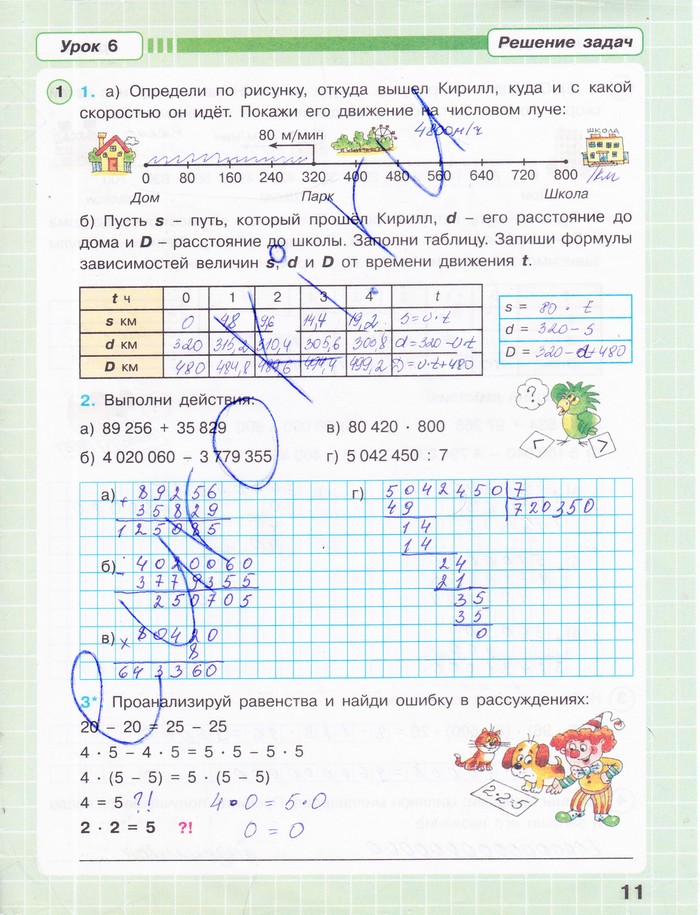 Урок 6
Решение задач
1 1. а) Определи по рисунку, откуда вышел Кирилл, куда и с какой
скоростью он идёт. Покажи его движение на числовом луче:
80 м/мин
4800м/ч
ШКОЛА
0 80 160 240 320 400 480 560 640 720 800
1км
Дом Парк Школа
б) Пусть s – путь, который прошёл Кирилл, d – его расстояние до
дома и D – расстояние до школы. Заполни таблицу. Запиши формулы
зависимостей величин s, d и D от времени движения t.
t ч 0 1 2 3 4 t
s км 0 48 96 14,4 19,2 s=v·t
d км 320 315,2 310,4 305,6 300,8 d=320-v·t
D км 480 484,8 489,6 494,4 499,2 D=v·t+480
s = 80 · t
d = 320-s
D = 320-d+480
2. Выполни действия:
а) 89 256 + 35 829 в) 80 420 · 800
б) 4 020 060 – 3 779 355 г) 5 042 450 : 7
?
< >
а) + 89256
35829
125085
б) - 4020060
3779355
250705
в) × 80420
8
643360
г) 5042450 7
49 720350
14
14
24
21
35
35
0
3* Проанализируй равенства и найди ошибку в рассуждениях:
20 – 20 = 25 – 25
4 · 5 – 4 · 5 = 5 · 5 – 5 · 5
4 · (5 – 5) = 5 · (5 – 5)
4 = 5 ?! 4·0=5·0
2 · 2 = 5 ?! 0=0
2·2=5
11